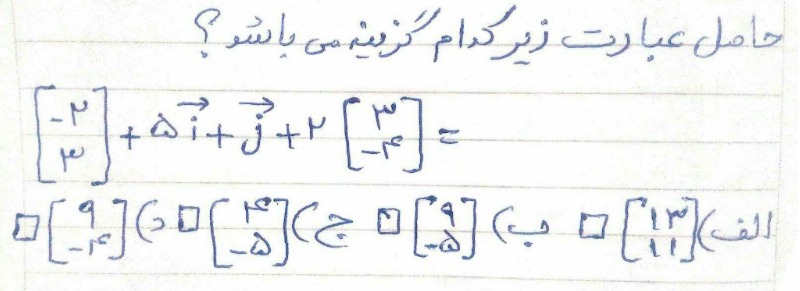 حاصل عبارت زیر کدام گزینه می باشد؟
[-۲ ۳] + ۵i⃗ + j⃗ + ۲ [۳ -۴] =
الف) [۱۳ ۱۱] □ ب) [۹ -۵] □ ج) [۴ -۵] □ د) [۹ -۴] □